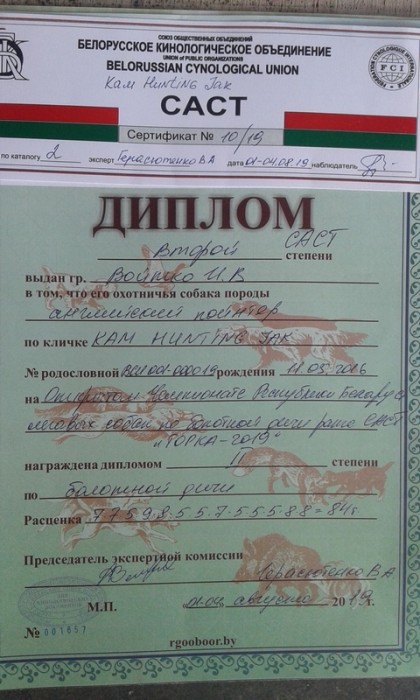 СОЮЗ ОБЩЕСТВЕННЫХ ОБЪЕДИНЕНИЙ
БЕЛОРУССКОЕ КИНОЛОГИЧЕСКОЕ ОБЪЕДИНЕНИЕ
UNION of PUBLIC ORGANIZATIONS
BELORUSSIAN CYNOLOGICAL UNION
FCI
Кам Hunting Jак
САСТ
Сертификат № 10/19
по каталогу 2 эксперт Герасютенко В А дата 01-04.08.19 наблюдатель
ДИПЛОМ
Второй САСТ степени
выдан гр. Войтко И.В
в том, что его охотничья собака породы
английский пойнтер
по кличке КАМ HUNTING JAK
№ родословной рождения 11.05.2016
на Открытом Чемпионате Республики Беларусь
легавых собак по болотной дичи ранга САСТ
"ГОРКА-2019"
награждена дипломом II степени
по болотной дичи
Расценка 7 7 5 9 8 - 5 5 7 - 5 5 5 8 8 = 84б
Председатель экспертной комиссии
Герасютенко В А
М.П. августа 2019г.
№ 001657
rgooboor.by